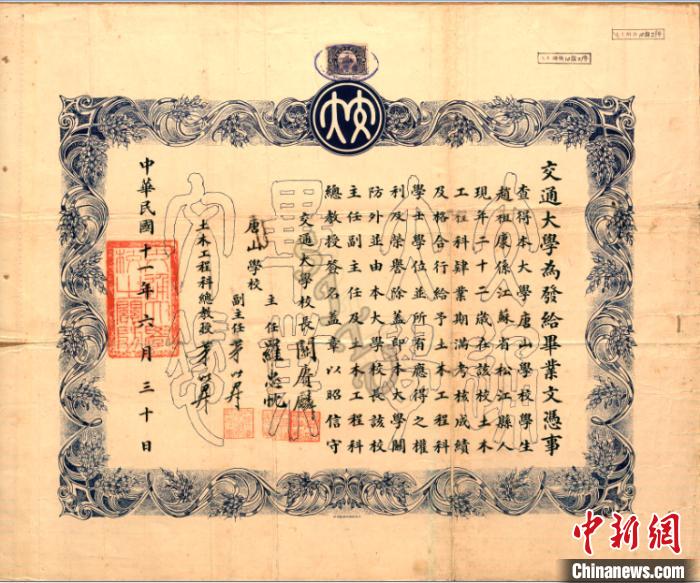 交大
交通大學為發給畢業文憑事
查得本大學唐山學校學生
趙祖康係江蘇省松江縣人
現年二十二歲在該校土木
工程科肄業期滿考核成績
及格合行給予土木工程科
學士學位並所有應得之權
利及榮譽除蓋印本大學關
防外並由本大學校長該校
主任副主任及土木工程科
總教授簽名蓋章以昭信守
交通大學校長 關賡麟
唐山學校
主任 羅忠忱
副主任 茅以昇
土木工程科總教授 茅以昇
中華民國十一年六月三十日
中新网
Chinanews.com